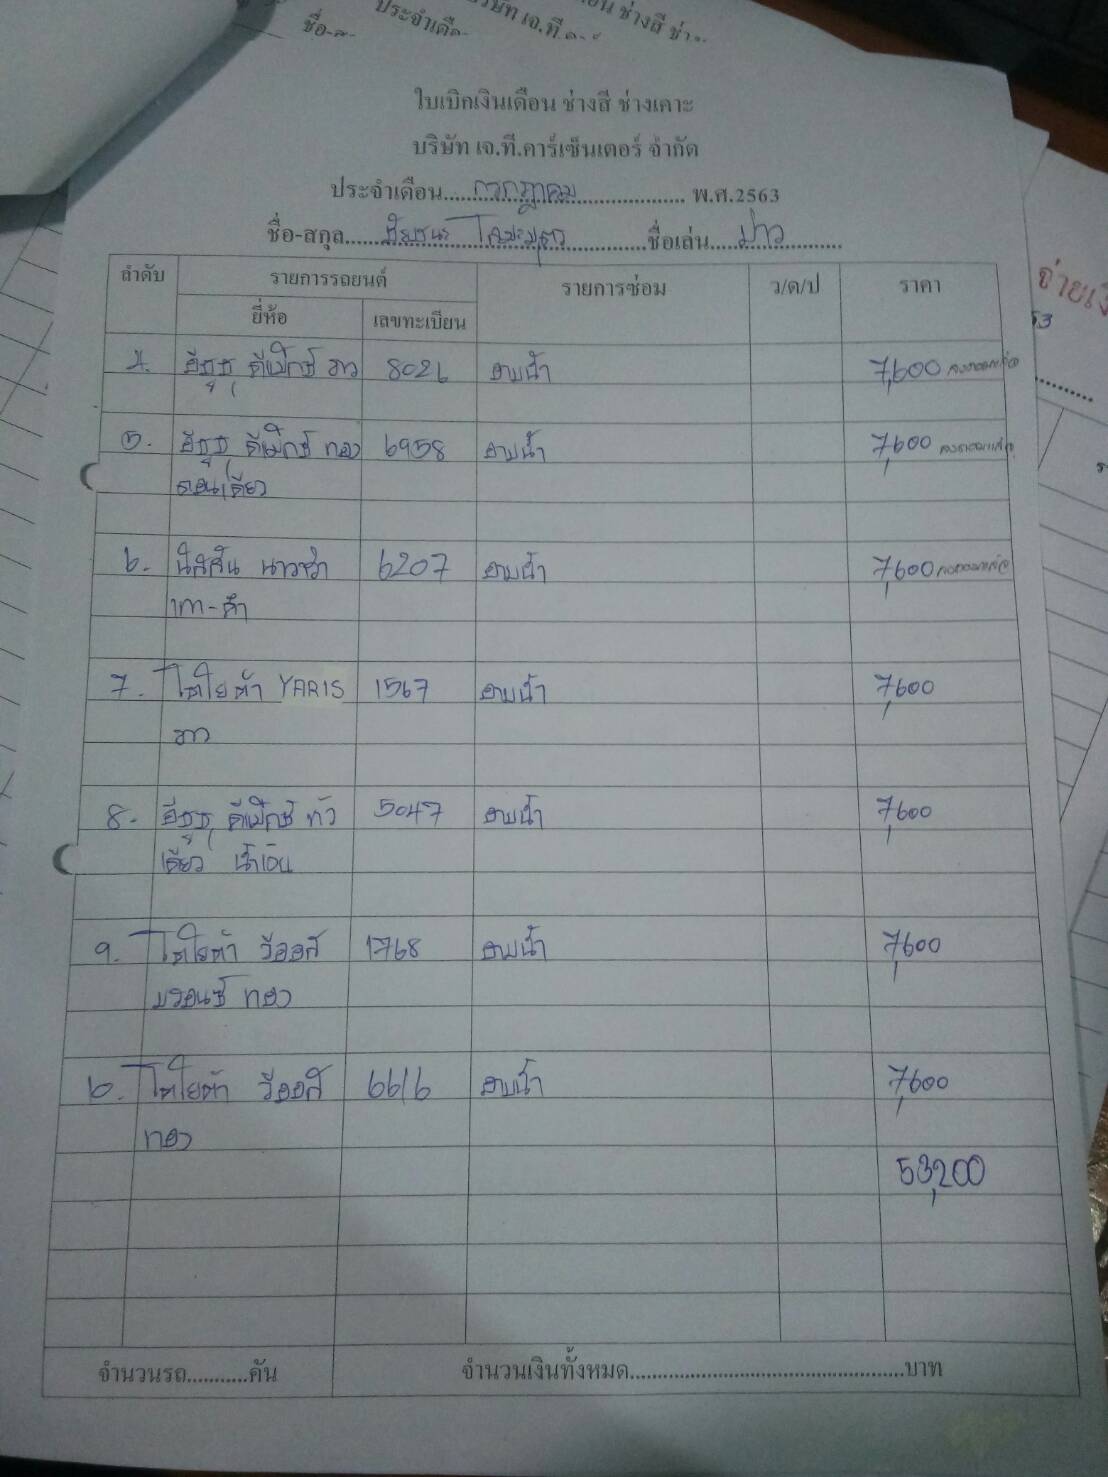 ประจำเดือ
บริษัท เจ.ที.
อน ช่างสี ช่า
ชื่อ-ส
ใบเบิกเงินเดือน ช่างสี ช่างเคาะ
บริษัท เจ.ที.คาร์เซ็นเตอร์ จำกัด
ประจำเดือน......กรกฎาคม...... พ.ศ.2563
ชื่อ-สกุล......ชัยชนะ......ชื่อเล่น......บ่าว......
ลำดับ รายการรถยนต์ รายการซ่อม ว/ด/ป ราคา
ยี่ห้อ เลขทะเบียน
ถ่ายเงิ
53
4. อีซูซุ ดีแม็กซ์ ขาว 8026 อาบน้ำ 7,600
5. อีซูซุ ดีแม็กซ์ ทอง 6958 อาบน้ำ 7,600
ตอนเดียว
6. นิสสัน นาวาร่า 6207 อาบน้ำ 7,600
เทา-ดำ
7. โตโยต้า YARIS 1567 อาบน้ำ 7,600
ขาว
8. อีซูซุ ดีแม็กซ์ หัว 5047 อาบน้ำ 7,600
เดียว น้ำเงิน
9. โตโยต้า วีออส 1768 อาบน้ำ 7,600
บรอนซ์ ทอง
10. โตโยต้า วีออส 6616 อาบน้ำ 7,600
ทอง
53,200
จำนวนรถ...........คัน จำนวนเงินทั้งหมด..................................................บาท